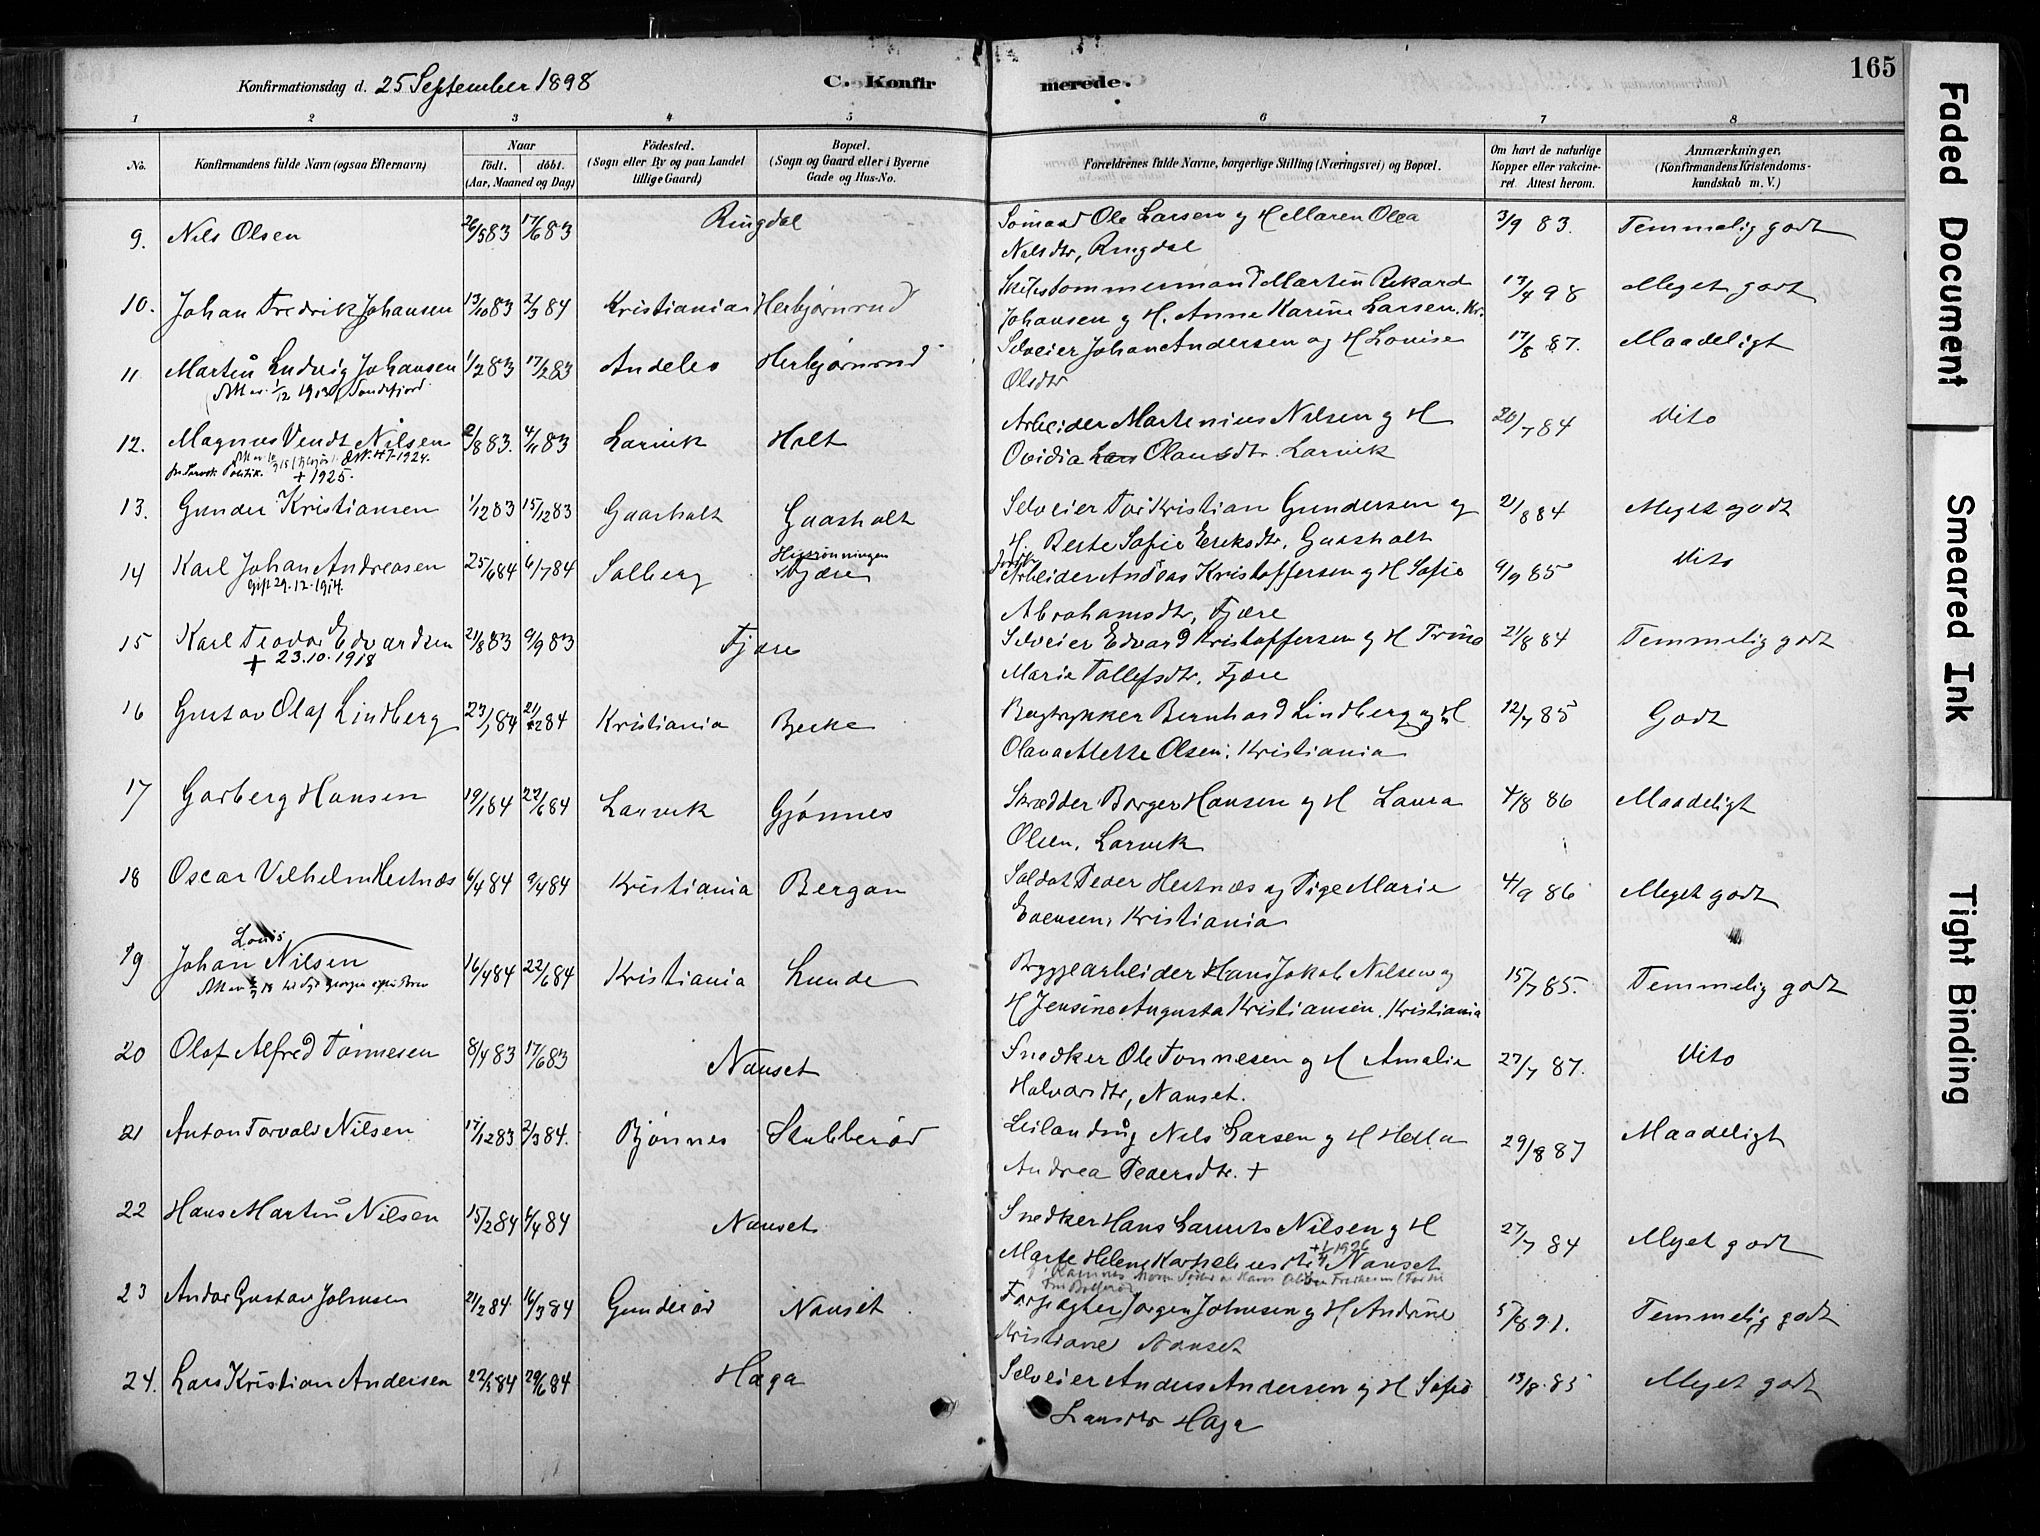 Konfirmationsdag d. 25 September 1898 C. Konfir merede. 165
1 2 3 4 5 6 7 8
No. Konfirmandens fulde Navn (ogsaa Efternavn) Naar født. døbt. (Aar, Maaned og Dag) Fødested. (Sogn eller By og paa Landet tillige Gaard) Bopæl. (Sogn og Gaard eller i Byerne Gade og Hus-No. Forældrenes fulde Navne, borgerlige Stilling (Næringsvei) og Bopæl. Om havt de naturlige Kopper eller vakcineret. Attest herom. Anmærkninger, (Konfirmandens Kristendomskundskab m. V.)
9. Nils Olsen 26/5 83 17/6 83 Ringdal Sömand Ole Larsen og H Maren Olea 3/9 83. Temmelig godt
Nilsdtr, Ringdal
10. Johan Fredrik Johansen 13/10 83 2/3 84 Kristiania Herbjørnrud Skibstømmermand Martin Rikard 17/4 98 Meget godt
Johansen og H. Anne Karine Larsen. Kr.
11. Martin Ludvig Johansen 1/2 83 17/2 83 Andebo Herbjørnrud Selveier Johan Andersen og H Louise 17/8 87. Maadeligt
Sandefjord Olsdtr
12. Magnus Vendt Nilsen 2/8 83. 4/11 83 Larvik Holt Arbeider Martenius Nilsen og H 20/7 84 Dito
1924.
+ 1925. Ovidia Olausdtr. Larvik
13. Gunder Kristiansen 1/12 83 15/12 83 Gaasholt Gaasholt Selveier Tor Kristian Gundersen og 21/8 84 Meget godt
H. Berte Sofie Eriksdtr, Gaasholt
14 Karl Johan Andreasen 25/6 84 6/7 84 Solberg Fjære Arbeider Andreas Kristoffersen og H Sofie 9/9 85 Dito
Gift 29.12.1914. Abrahamsdtr, Fjære
15 Karl Teodor Edvardsen 21/8 83 9/9 83 Fjære Selveier Edvard Kristoffersen og H Trine 21/8 84 Temmelig godt
+ 23.10.1918 Marie Tollefsdtr, Fjære
16 Gustav Olaf Lindberg 23/1 84 21/2 84 Kristiania Bogtrykker Bernhard Lindberg og H 12/7 85 Godt
Olava Mette Olsen. Kristiania
17 Garberg Hansen 19/1 84 22/6 84 Larvik Gjönnes Skrædder Borger Hansen og H Laura 4/8 86 Maadeligt
Olsen, Larvik
18 Oscar Vilhelm Hestnæs 6/4 84 9/4 84 Kristiania Bergan Soldat Peder Hestnæs og Pige Marie 4/9 86 Meget godt
Evensen, Kristiania
Louis
19 Johan Nilsen 16/4 84 22/6 84 Kristiania Lunde Bryggearbeider Hans Jakob Nilsen og 15/7 85. Temmelig godt
H Jensine Augusta Kristiansen. Kristiania
20 Olaf Alfred Tønnesen 8/4 83 17/6 83 Nanset Snedker Ole Tönnesen og H Amalie 27/7 87. Dito
Halvorsdtr, Nanset.
21 Anton Torvald Nilsen 17/12 83 2/3 84. Bjönnes Stubberöd Leilending Nils Larsen og H Hella 29/8 87 Maadeligt
Andrea Pedersdtr. +
22 Hans Martin Nilsen 15/2 84 6/4 84 Nanset Snedker Hans Lauritz Nilsen og H 27/7 84 Meget godt
Marte Helene 1926 Nanset
23 Andor Gustav Johnsen 21/2 84 16/3 84 Gunderöd Nanset Forpagter Jørgen Johnsen og H Andrine 5/8 91. Temmelig godt
Kristiane Nanset
24. Lars Kristian Andersen 22/5 84 29/6 84 Haga Selveier Anders Andersen og H Sofie 13/8 85 Meget godt
Larsdtr Haga
Faded Document
Smeared Ink
Tight Binding